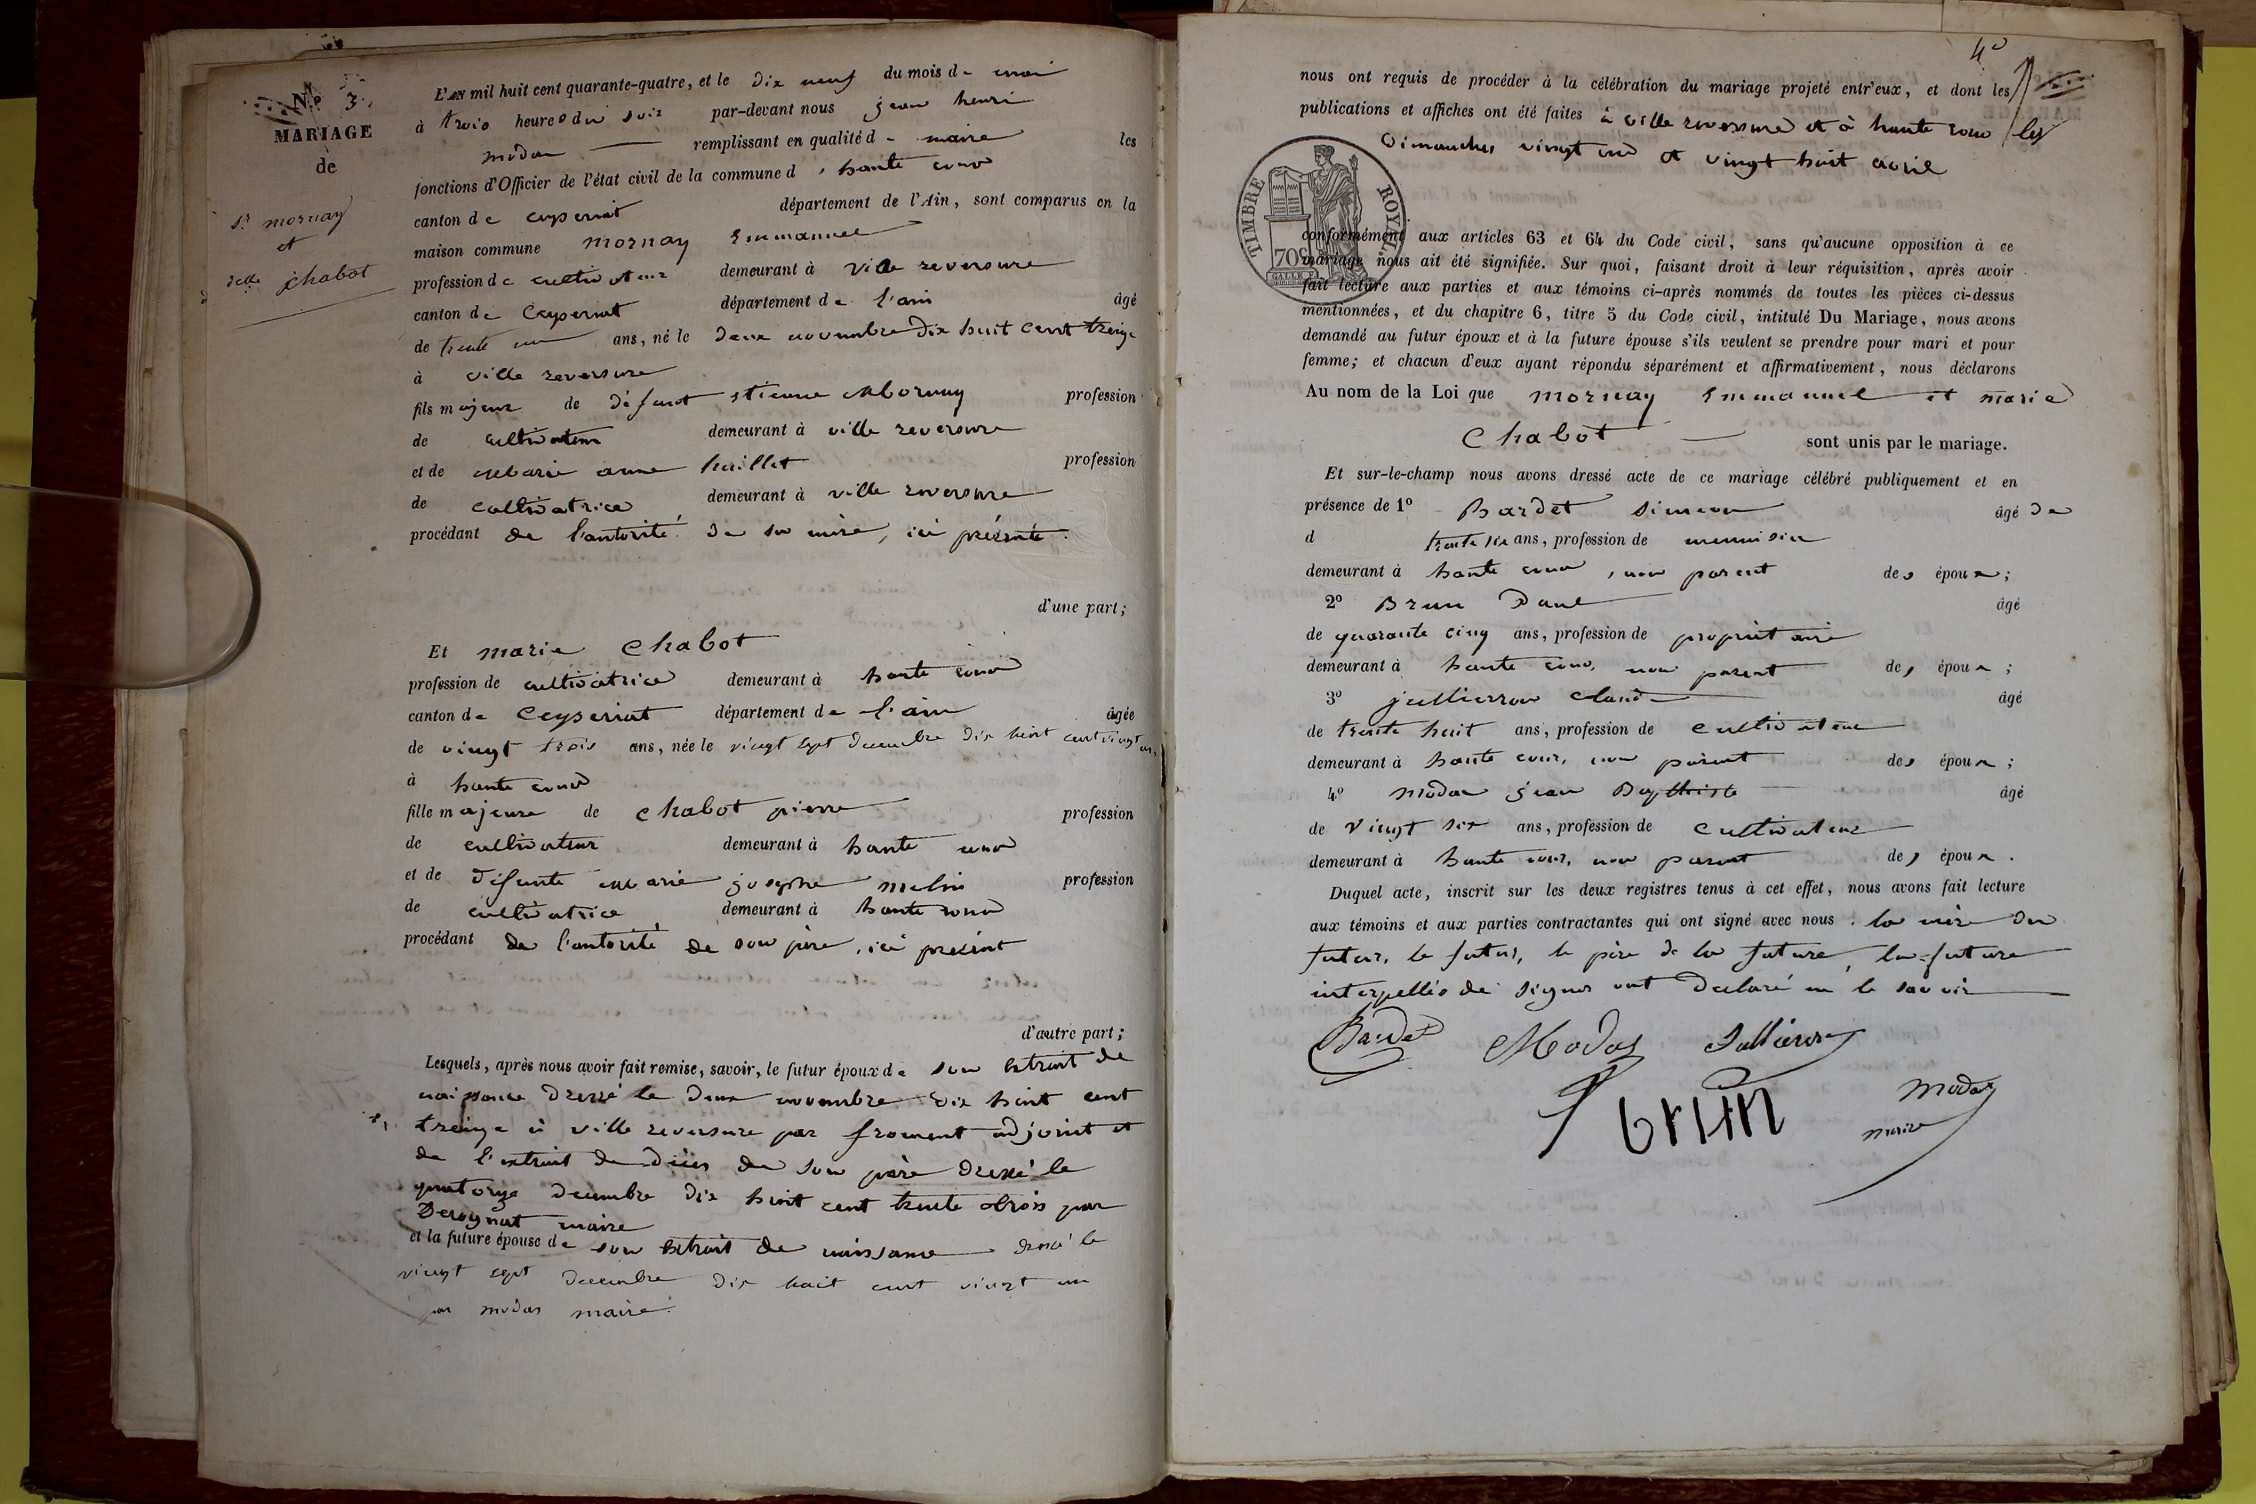 N.º 3.
MARIAGE
de
Sr mornay
et
delle chabot
L'AN mil huit cent quarante-quatre, et le dix neuf du mois de mai
à trois heures du soir par-devant nous jean henri
modas remplissant en qualité de maire les
fonctions d'Officier de l'état civil de la commune d haute cour
canton de ceyseriat département de l'Ain, sont comparus en la
maison commune mornay Emmanuel
profession de cultivateur demeurant à ville reversure
canton de Ceyseriat département de l'ain âgé
de trente un ans, né le deux novembre dix huit cent treize
à ville reversure
fils majeur de défunt etienne Mornay profession
de cultivateur demeurant à ville reversure
et de Marie anne huillet profession
de cultivatrice demeurant à ville reversure
procédant de l'autorité de sa mère, ici présente.
d'une part;
Et marie Chabot
profession de cultivatrice demeurant à haute cour
canton de Ceyseriat département de l'ain âgée
de vingt trois ans, née le vingt sept decembre dix huit cent vingt un,
à haute cour
fille majeure de chabot pierre profession
de cultivateur demeurant à haute cour
et de défunte marie josephe melin profession
de cultivatrice demeurant à haute cour
procédant de l'autorité de son père, ici présent
d'autre part;
Lesquels, après nous avoir fait remise, savoir, le futur époux de son extrait de
naissance dressé le deux novembre dix huit cent
treize à ville reversure par froment adjoint et
de l'extrait de décès de son père dressé le
quatorze decembre dix huit cent trente trois par
Derognat maire
et la future épouse de son extrait de naissance dressé le
vingt sept decembre dix huit cent vingt un
par modas maire.
4e
nous ont requis de procéder à la célébration du mariage projeté entr'eux, et dont les
publications et affiches ont été faites à ville reversure et à haute cour les
Dimanches vingt un et vingt huit avril
TIMBRE ROYAL
70c
conformément aux articles 63 et 64 du Code civil, sans qu'aucune opposition à ce
mariage nous ait été signifiée. Sur quoi, faisant droit à leur réquisition, après avoir
fait lecture aux parties et aux témoins ci-après nommés de toutes les pièces ci-dessus
mentionnées, et du chapitre 6, titre 5 du Code civil, intitulé Du Mariage, nous avons
demandé au futur époux et à la future épouse s'ils veulent se prendre pour mari et pour
femme; et chacun d'eux ayant répondu séparément et affirmativement, nous déclarons
Au nom de la Loi que mornay Emmanuel et marie
Chabot sont unis par le mariage.
Et sur-le-champ nous avons dressé acte de ce mariage célébré publiquement et en
présence de 1º Bardet simeon âgé de
d trente six ans, profession de menuisier
demeurant à haute cour, non parent des époux;
2º Brun Paul âgé
de quarante cinq ans, profession de propriétaire
demeurant à haute cour, non parent des époux;
3º jullierron claude âgé
de trente huit ans, profession de cultivateur
demeurant à haute cour, non parent des époux;
4º modas jean Bapthiste âgé
de vingt six ans, profession de cultivateur
demeurant à haute cour, non parent des époux.
Duquel acte, inscrit sur les deux registres tenus à cet effet, nous avons fait lecture
aux témoins et aux parties contractantes qui ont signé avec nous. la mère du
futur, le futur, le père de la future, la future
interpellés de signer ont declaré ne le savoir
Bardet Modas Jullierron
P brun modas
maire